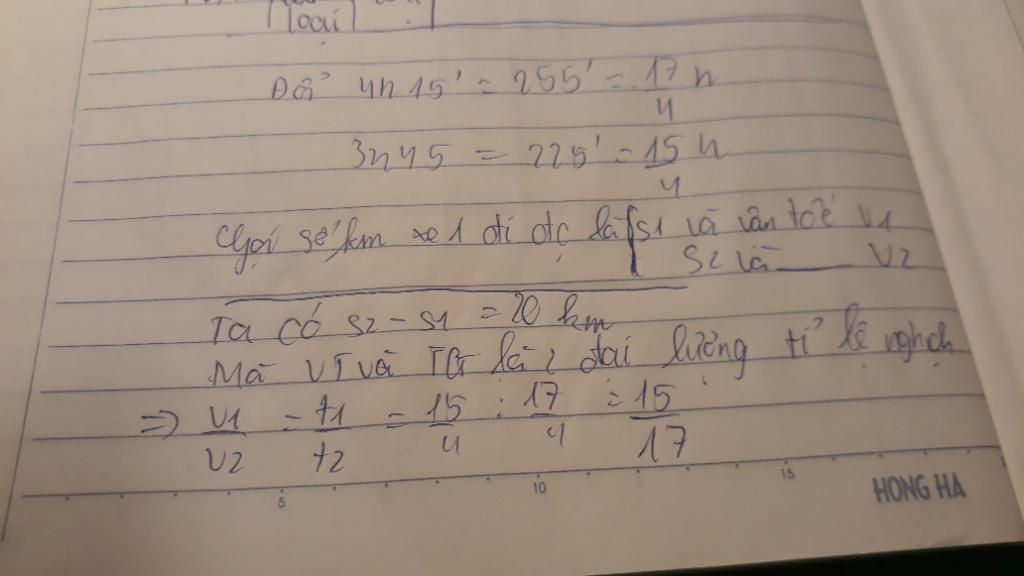 loại
Đổi 4h15' = 255' = 17/4 h
3h45 = 225' = 15/4 h
Gọi số km xe 1 đi đc là S1 và vân tốc V1
S2 và ___ V2
Ta có S2 - S1 = 20 km
Mà VT và TG là 2 đại lường tỉ lệ nghịch
=> V1/V2 = t1/t2 = 15/4 : 17/4 = 15/17
5 10 15
HONG HA